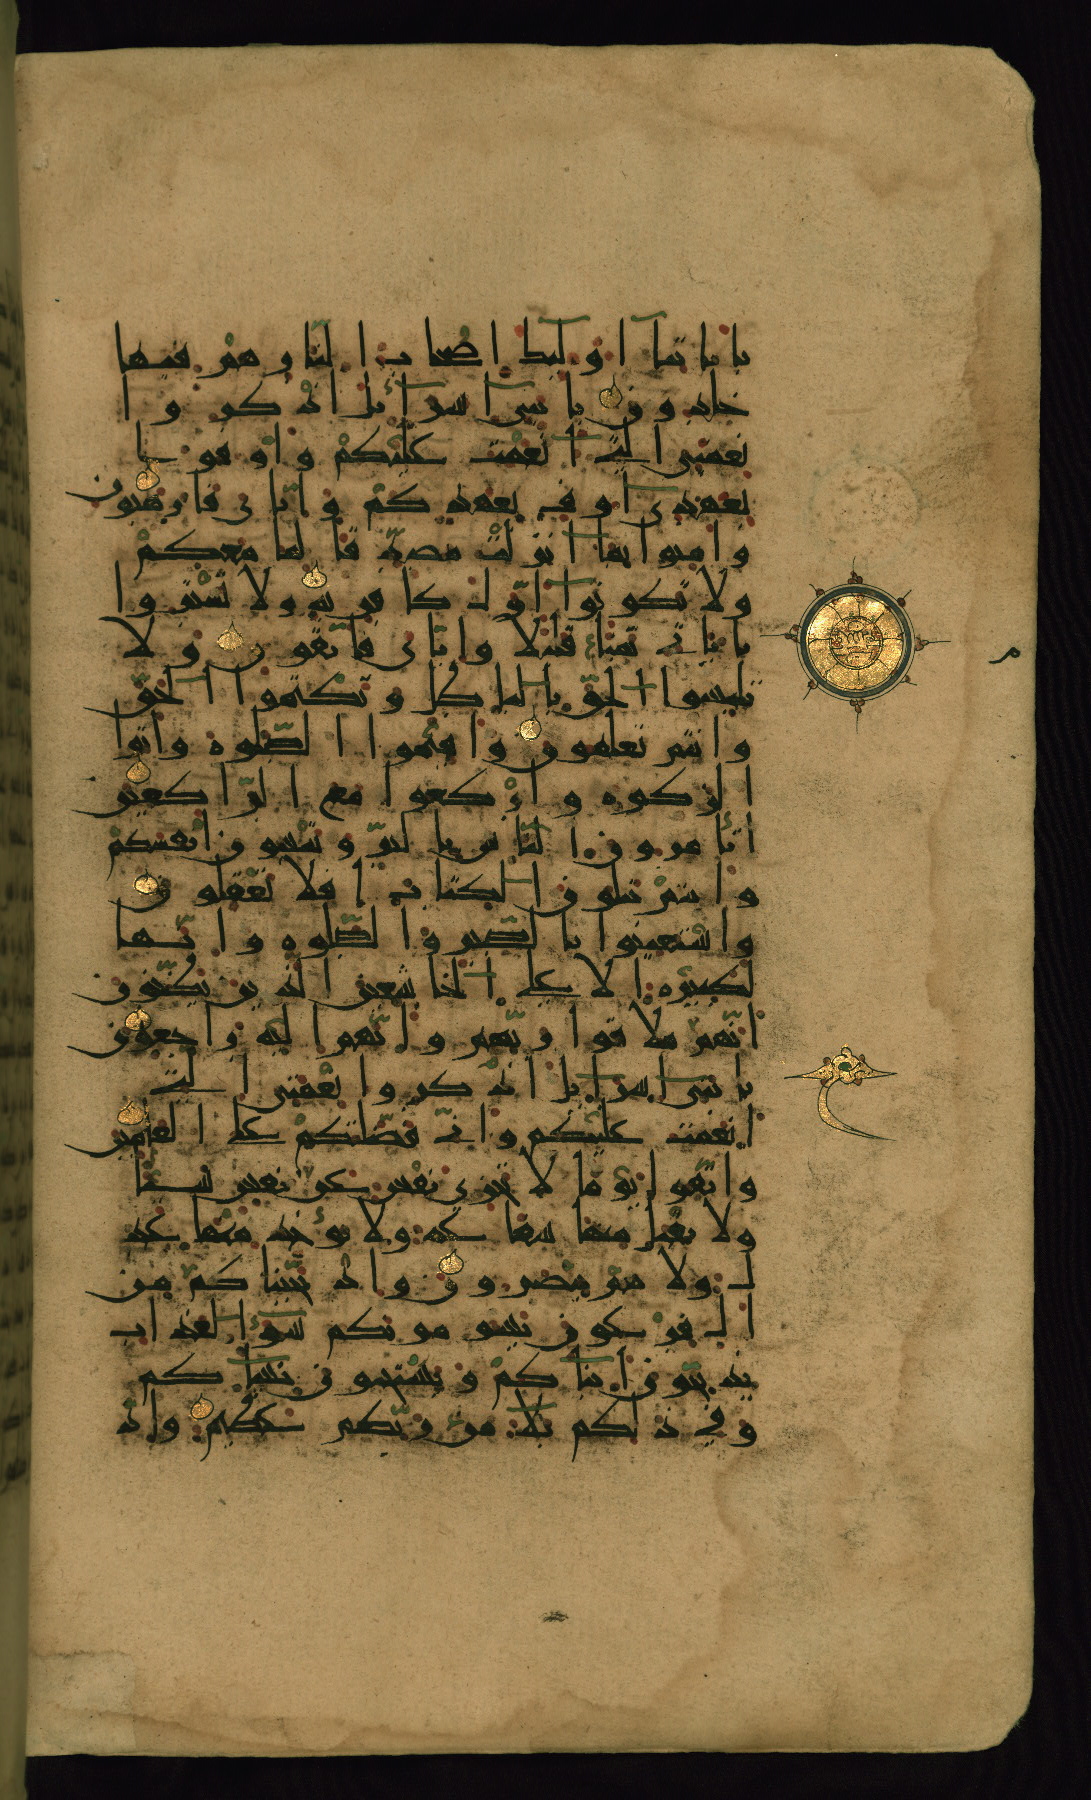 باياتنا اولئك اصحاب النار هم فيها
خالدون يا بني اسرائيل اذكروا
نعمتي التي انعمت عليكم واوفوا
بعهدي اوف بعهدكم واياي فارهبون
وامنوا بما انزلت مصدقا لما معكم
ولا تكونوا اول كافر به ولا تشتروا
باياتي ثمنا قليلا واياي فاتقون ولا
تلبسوا الحق بالباطل وتكتموا الحق
وانتم تعلمون واقيموا الصلوة واتوا
الزكوة واركعوا مع الراكعين
اتامرون الناس بالبر وتنسون انفسكم
وانتم تتلون الكتاب افلا تعقلون
واستعينوا بالصبر والصلوة وانها
لكبيرة الا على الخاشعين الذين يظنون
انهم ملاقوا ربهم وانهم اليه راجعون
يا بني اسرائيل اذكروا نعمتي التي
انعمت عليكم واني فضلتكم على العالمين
واتقوا يوما لا تجزي نفس عن نفس شيئا
ولا يقبل منها شفاعة ولا يؤخذ منها عد
ل ولا هم ينصرون واذ نجيناكم من
ال فرعون يسومونكم سوء العذاب
يذبحون ابناءكم ويستحيون نساءكم
وفي ذلكم بلاء من ربكم عظيم واذ